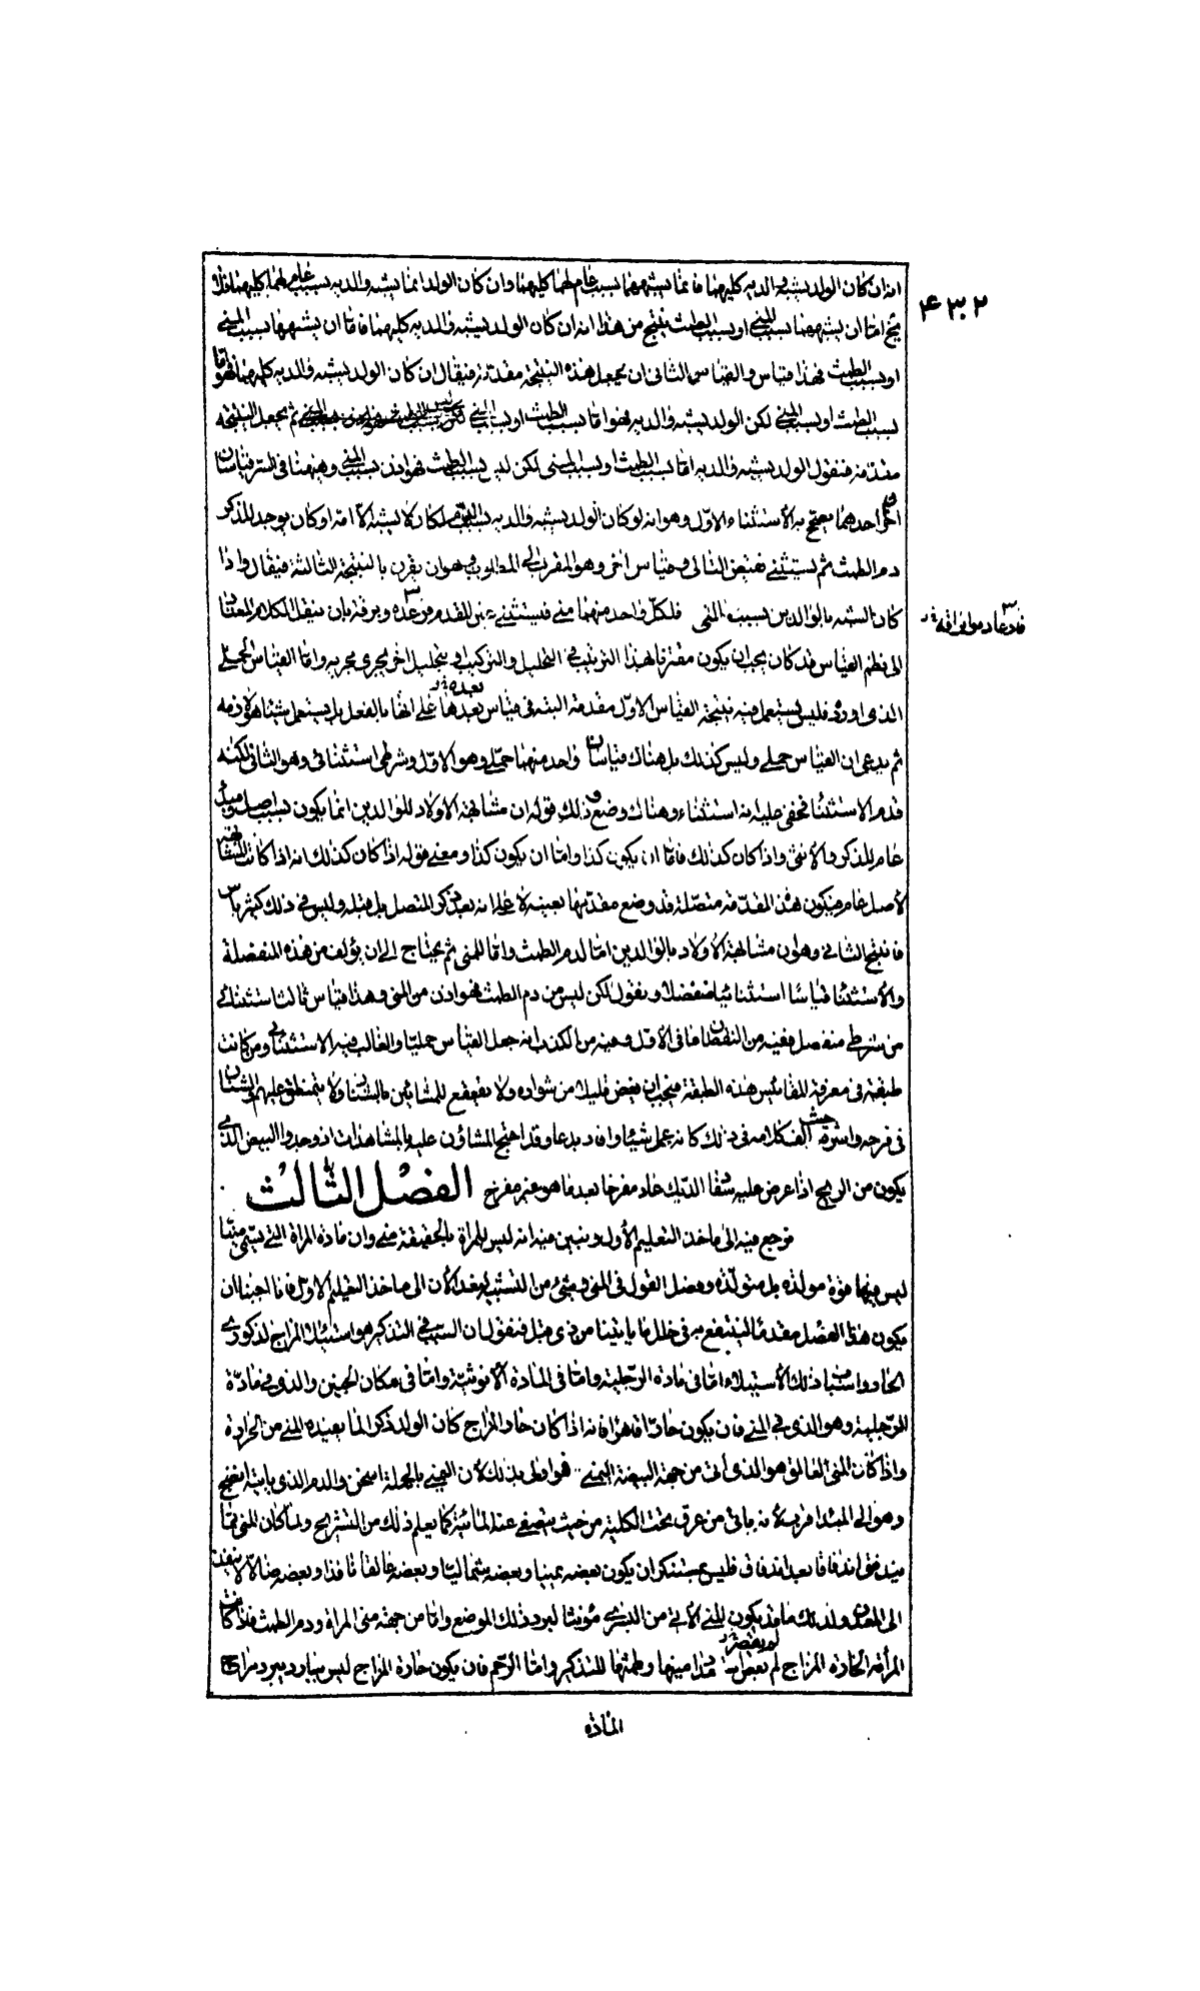 انه ان كان الولد يشبه والديه كليهما فانما يشبههما بسبب عام لهما كليهما وان كان الولد انما يشبه والديه بسبب عام لهما كليهما
۴۳۲
اما ان يشبههما بسبب المنى او بسبب الطمث ينتج من هذا انه ان كان الولد يشبه والديه كليهما فاما ان يشبههما بسبب المنى
او بسبب الطمث فهذا قياس والقياس الثانى ان يجعل هذه النتيجة مقدمة فيقال ان كان الولد يشبه والديه كليهما فهو اما
بسبب الطمث او بسبب المنى لكن الولد يشبه والديه فهو اما بسبب الطمث او بسبب المنى ثم يجعل النتيجة
مقدمة فنقول الولد يشبه والديه اما بسبب الطمث او بسبب المنى لكن ليس بسبب الطمث فهو اذن بسبب المنى وههنا فى السر قياسان
احدهما يصحح به الاستثناء الاول وهو انه لو كان الولد يشبه والديه بسبب لكان لا يشبه الا امه او كان يوجد للذكر
دم الطمث ثم يستثنى نقيض التالى وقياس اخر وهو المقرب الى المطلوب وهو ان يقرن بالنتيجة الثالثة فيقال واذا
كان الشبه بالوالدين بسبب المنى فلكل واحد منهما منى فيستثنى عين المقدم فان ينقل الكلام
الى نظم القياس قد كان يجب ان يكون مقترنا بهذا الترتيب فى التحليل والتركيب او بتحليل اخر يجرى مجريه واما القياس الحملى
الذى اورده فليس يستعمل فيه نتيجة القياس الاول مقدمة البتة فى قياس بعدها على انها بالفعل بل يستعمل شيئا هو لازمه
بعده
ثم يدعى ان القياس حملى وليس كذلك بل هناك قياسان واحد منهما حملى وهو الاول وشرطى استثنائى وهو الثانى لكنه
قدم الاستثناء فخفى عليه انه استثناء وهناك وضع ذلك قوله ان مشابهة الاولاد للوالدين انما يكون بسبب اصل
عام للذكر والانثى واذا كان كذلك فاما ان يكون كذا واما ان يكون كذا ومعنى قوله اذا كان كذلك انه اذا كانت المشابهة
لاصل عام فيكون هذه المقدمة متصلة قد وضع مقدمها بعينه لا على انه بعد ذكر المتصل بل قبله وليس فى ذلك كثير باس
فانتج الثانى وهو ان مشابهة الاولاد بالوالدين اما لدم الطمث واما للمنى ثم يحتاج الى ان يؤلف من هذه المنفصلة
والاستثناء قياسا استثنائيا منفصلا ويقول لكن ليس من دم الطمث فهو اذن من المنى وهذا قياس ثالث استثنائى
من شرطى منفصل ففيه من النقصان ما فى الاول وفيه من الكذب انه جعل القياس حمليا والغالب فيه الاستثنائى ومن كانت
طبقته فى معرفة المقائيس هذه الطبقة فيجب ان يغض قليلا من شواده ولا يقعقع للمشائين بالشنان ولا
كلامه فى ذلك كانه عمل شيئا وافاد بدعا وقد احتج المشاؤن عليه بالمشاهدات اذ وجدوا البيض الذى
يكون من الريح اذا عرض عليه سفاد الديك عاد مفرخا بعد ما هو غير مفرخ الفصل الثالث
نرجع فيه الى ماخذ التعليم الاول ونبين فيه انه ليس للمراة بالحقيقة منى وان مادة المراة التى يسمى منيا
ليس فيها قوة مولدة بل متولدة وفصل القول فى المنى وشىء من التشريح الان الى ماخذ التعليم الاول فانا احببنا ان
يكون هذا الفصل مقدما لينتفع به فى خلل ما ياتينا من ذى قبل فنقول ان السبب فى التذكير هو استيلاء المزاج لذكورى
الحار واسباب ذلك الاستيلاء اما فى مادة الرجلية واما فى المادة الانوثية واما فى مكان الجنين والذى فى مادة
الرجلية وهو الذى فى المنى فان يكون حارا قاهرا فانه اذا كان حار المزاج كان الولد ذكرا لما يفيده المنى من الحرارة
واذا كان المنى الغالب هو الذى اتى من جهة البيضة اليمنى فهو اولى بذلك لان اليمين بالجملة اسخن والدم الذى ياتيه انضج
وهو الى المبدا اقرب لانه ياتى من عرق تحت الكلية من حيث يتصفى عند المائية كما يعلم ذلك من التشريح ولما كان المنى مما
يندفق اندفاقا بعد اندفاق فليس بمستنكر ان يكون بعضه يمينيا وبعضه شماليا وبعضه غالفا نافذا وبعضه ضالا لا ينفذ
الى المعدن ولذلك ما قد يكون المنى الاتى من اليسرى مؤنثا لبرد ذلك الموضع واما من جهة منى المراة ودم الطمث فاذا كانت
المراة الحارة المزاج لم منيها وطمثها للتذكير واما الرحم فان يكون حارة المزاج ليس ببارد يبرد مزاج
المادة